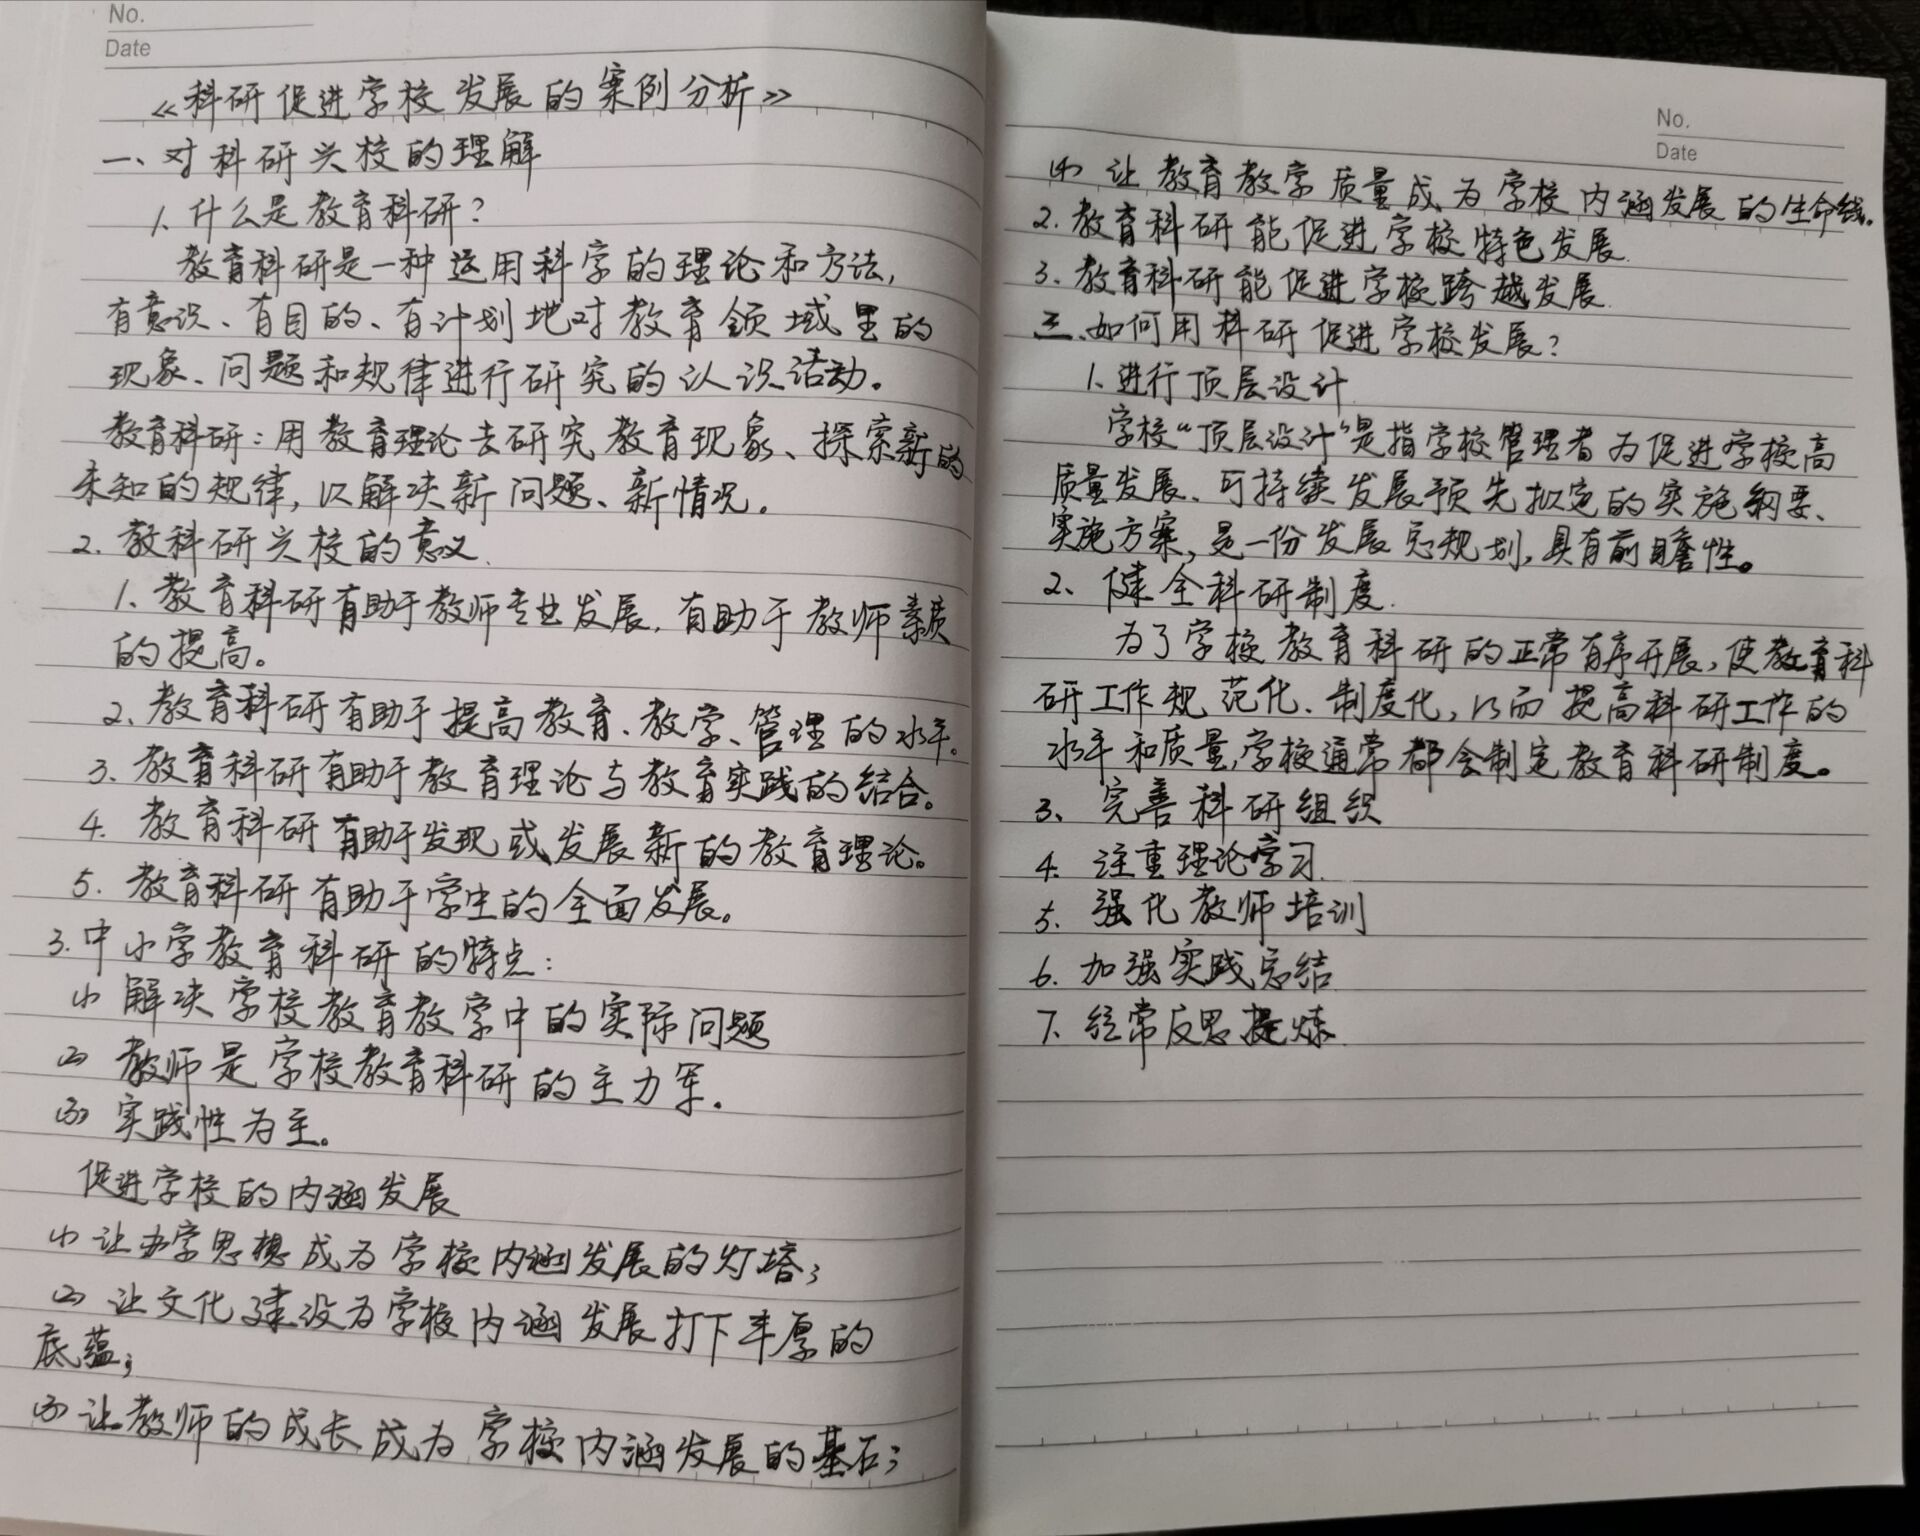 No.
Date
《科研促进学校发展的案例分析》
一、对科研兴校的理解
1.什么是教育科研?
教育科研是一种运用科学的理论和方法,
有意识、有目的、有计划地对教育领域里的
现象、问题和规律进行研究的认识活动。
教育科研:用教育理论去研究教育现象、探索新的
未知的规律,以解决新问题、新情况。
2.教科研兴校的意义.
1、教育科研有助于教师专业发展,有助于教师素质
的提高。
2、教育科研有助于提高教育、教学、管理的水平。
3、教育科研有助于教育理论与教育实践的结合。
4.教育科研有助于发现或发展新的教育理论。
5.教育科研有助于学生的全面发展。
3.中小学教育科研的特点:
(1)解决学校教育教学中的实际问题
(2)教师是学校教育科研的主力军.
(3)实践性为主。
促进学校的内涵发展
(1)让办学思想成为学校内涵发展的灯塔;
(2)让文化建设为学校内涵发展打下丰厚的
底蕴;
(3)让教师的成长成为学校内涵发展的基石;
No.
Date
(4)让教育教学质量成为学校内涵发展的生命线。
2.教育科研能促进学校特色发展.
3.教育科研能促进学校跨越发展.
三、如何用科研促进学校发展?
1、进行顶层设计
学校“顶层设计”是指学校管理者为促进学校高
质量发展、可持续发展预先拟定的实施纲要、
实施方案,是一份发展总规划,具有前瞻性。
2、健全科研制度.
为了学校教育科研的正常有序开展,使教育科
研工作规范化、制度化,从而提高科研工作的
水平和质量,学校通常都会制定教育科研制度。
3、完善科研组织
4.注重理论学习.
5.强化教师培训
6.加强实践总结
7.经常反思提炼.